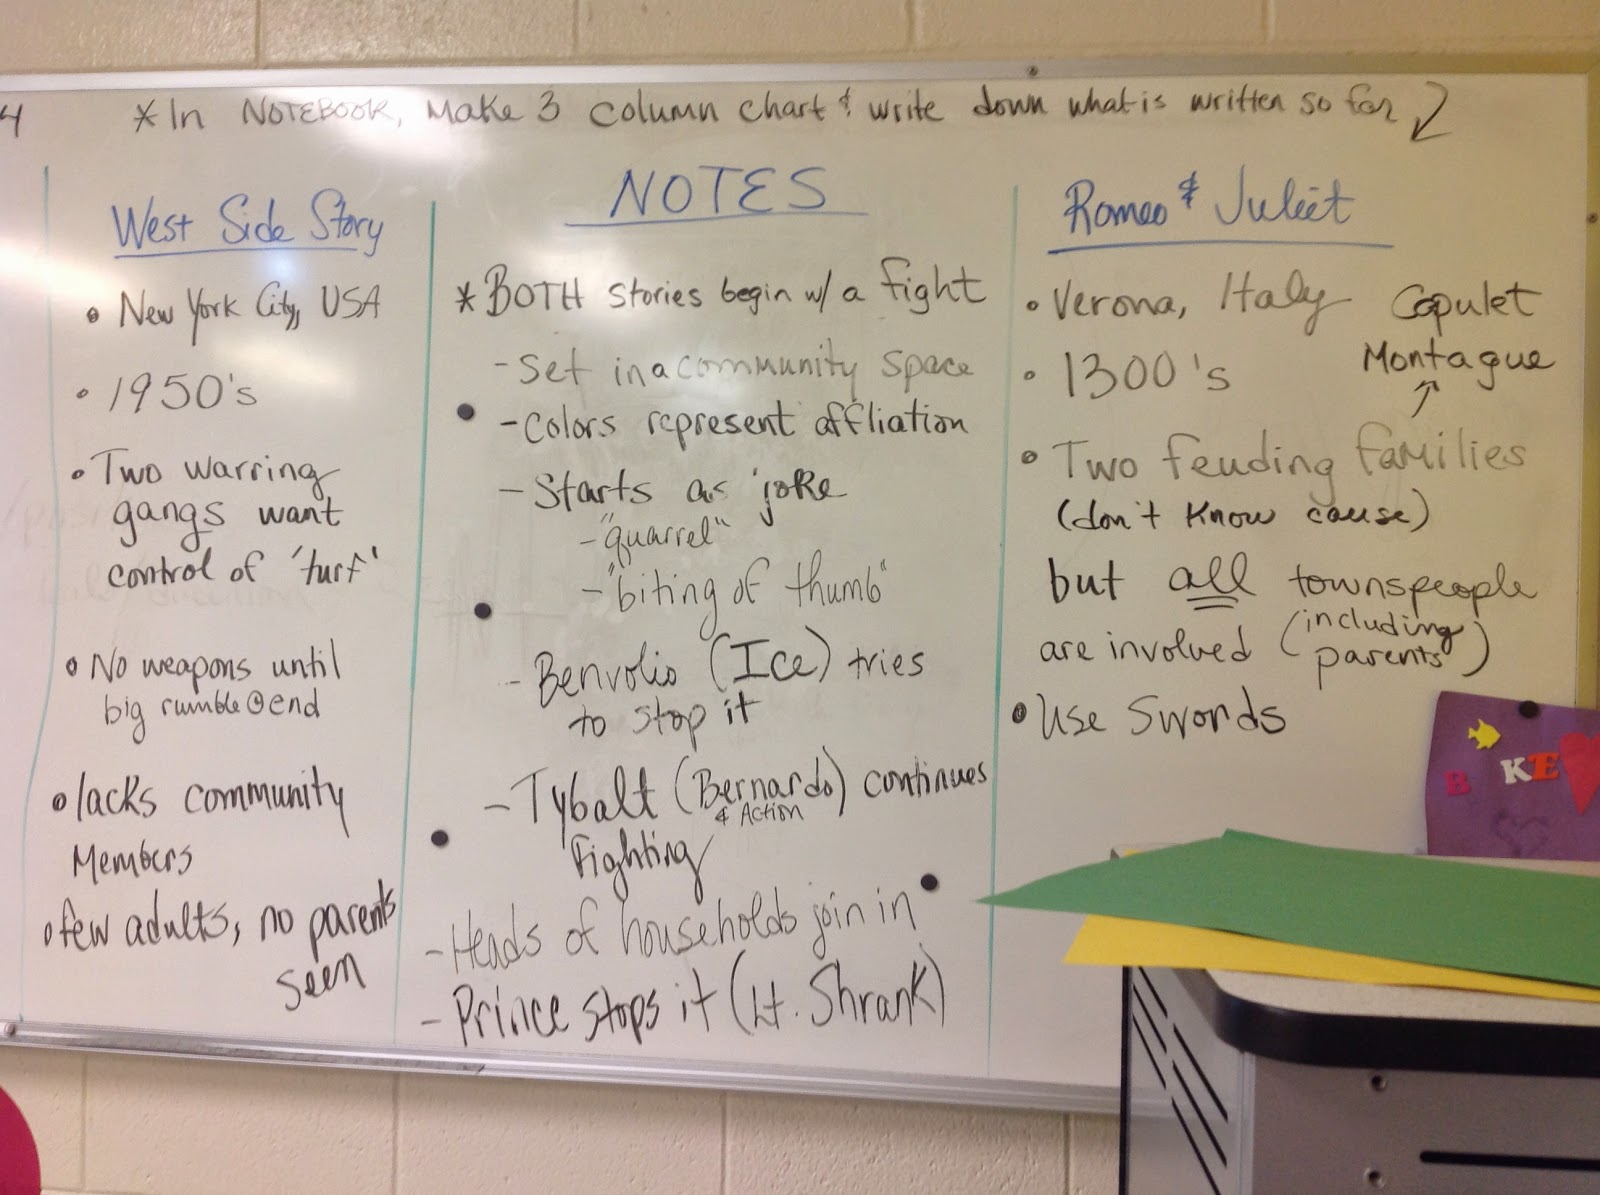 4
* In NOTEBOOK, Make 3 column chart & write down what is written so far
West Side Story
• New York City, USA
• 1950's
• Two warring
gangs want
control of 'turf'
• No weapons until
big rumble @ end
• lacks community
Members
• few adults, no parents
seen
NOTES
* BOTH stories begin w/ a fight
- Set in a community space
- Colors represent affliation
- Starts as joke
- "quarrel"
- "biting of thumb"
- Benvolio (Ice) tries
to stop it
- Tybalt (Bernardo) continues
& Action
Fighting
- Heads of households join in
- Prince stops it (Lt. Shrank)
Romeo & Juliet
• Verona, Italy
Capulet
Montague
• 1300's
• Two feuding families
(don't know cause)
but all townspeople
are involved (including
parents)
• Use Swords
B KE